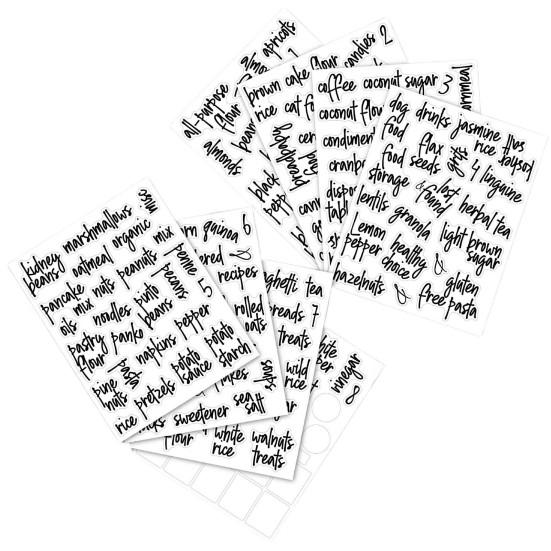 almo apricots
all-purpose 1
flour
bean
almonds
black
pepp
brown cake flour candies 2
rice cat f
cer
breadcr
cann
coffee coconut sugar 3
coconut flou
condiment
cranb
dispo
tabl
oatmeal
dog drinks jasmine
food rice kosher salt
flax
food seeds gift 4 linguine
storage & lost
found herbal tea
lentils granola
lemon healthy light brown
pepper choice sugar
hazelnuts & & gluten
free pasta
kidney marshmallows misc
beans
oatmeal organic
pancake mix
mix nuts peanuts penne
oils pecans
noodles pinto 5
pastry panko beans
flour
napkins pepper
pasta
pine potato potato
nuts sauce starch
rice pretzels
rn quinoa 6
ered &
recipes
rolled
oats
flakes soups
sweetener sea
salt
ghetti tea
breads 7
treats
wild
rice
flour white walnuts
rice treats
white
vinegar
8